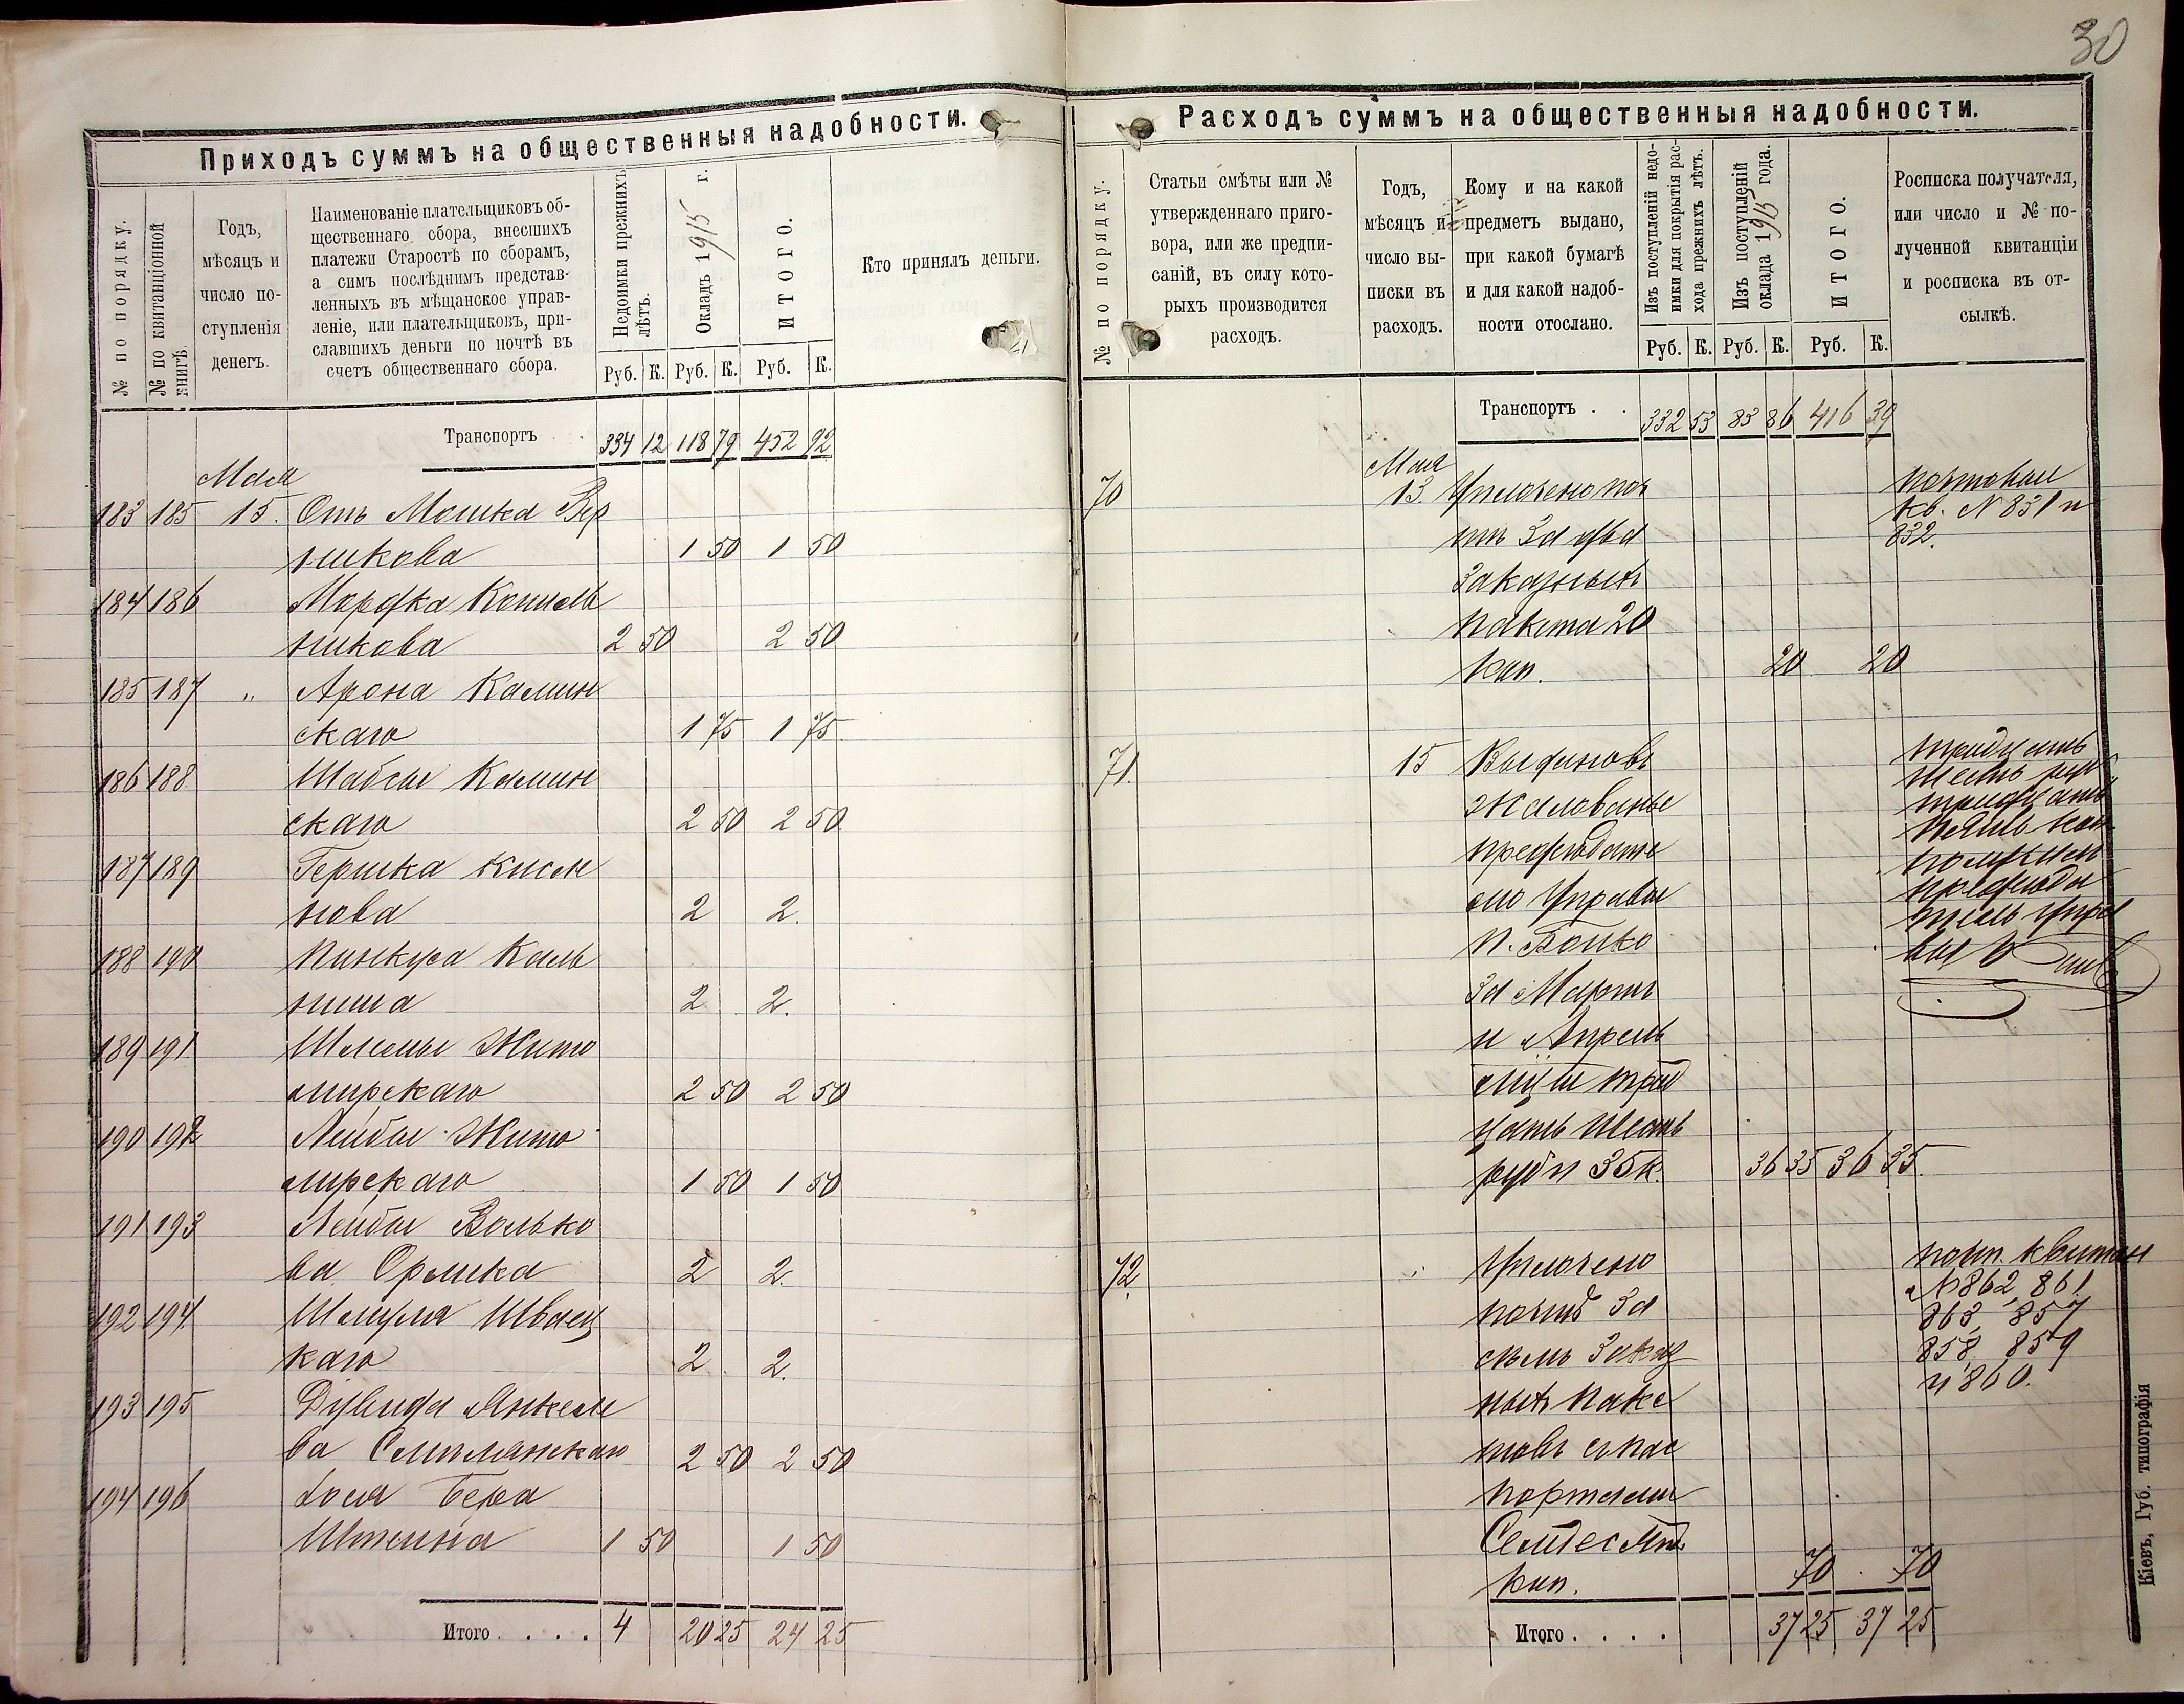 30
Приходъ суммъ на общественныя надобности.
№ по порядку.
№ по квитанціонной книгѣ.
Годъ,
мѣсяцъ и
число по-
ступленія
денегъ.
Наименованіе плательщиковъ об-
щественнаго сбора, внесшихъ
платежи Старостѣ по сборамъ,
а симъ послѣднимъ представ-
ленныхъ въ мѣщанское управ-
леніе, или плательщиковъ, при-
славшихъ деньги по почтѣ въ
счетъ общественнаго сбора.
Недоимки прежнихъ лѣтъ.
Окладъ 1915 г.
ИТОГО.
Кто принялъ деньги.
Руб. К. Руб. К. Руб. К.
Транспортъ 334 12 118 79 452 92
Мая
183 185 15. Отъ Мошка Вер
никова 1 50 1 50
184 186 Мордка Котель
никова 2 50 2 50
185 187 „ Арона Камин
скаго 1 75 1 75
186 188 Шабсы Камин
скаго 2 50 2 50
187 189 Гершка
нова 2 2.
188 190 Пинкуса Каль
ниша 2 2.
189 191 Шлемы Жито
мирскаго 2 50 2 50
190 192 Лейбы Жито
мирскаго 1 50 1 50
191 193 Лейбы Волько
ва Орлика 2 2.
192 194 Шмуля Швец
каго 2 2.
193 195 Дувида Янкеле
ва Смилянскаго 2 50 2 50
194 196 Іося Бера
Штейна 1 50 1 50
Итого.... 4 20 25 24 25
Расходъ суммъ на общественныя надобности.
№ по порядку.
Статьи смѣты или №
утвержденнаго приго-
вора, или же предпи-
саній, въ силу кото-
рыхъ производится
расходъ.
Годъ,
мѣсяцъ и
число вы-
писки въ
расходъ.
Кому и на какой
предметъ выдано,
при какой бумагѣ
и для какой надоб-
ности отослано.
Изъ поступленій недо-
имки для покрытія рас-
хода прежнихъ лѣтъ.
Изъ поступленій
оклада 1915 года.
ИТОГО.
Росписка получателя,
или число и № по-
лученной квитанціи
и росписка въ от-
сылкѣ.
Руб. К. Руб. К. Руб. К.
Транспортъ . . 332 53 83 86 416 39
Мая
70 13. Уплочено поч
тѣ за два
заказныхъ
пакета 20
коп. 20 20
почтовыи
кв. N 831 и
832.
71. 15
жалованье
предсѣдате
лю Управы
п. Бойко
за Мартъ
и Апрель
м-цы трид
цать шесть
руб и 35 к. 36 35 36 35.
тридцать
шесть руб
тридцать
пять коп
получилъ
предсѣда
тель Упра
вы
72. Уплочено
почтѣ за
семь заказ
ныхъ паке
товъ съ пас
портами
Семдесятъ
коп. 70 70
почт. квитан
N 862, 861
863, 857
858, 859
и 860.
Итого.... 37 25 37 25
Кіевъ, Губ. типографія